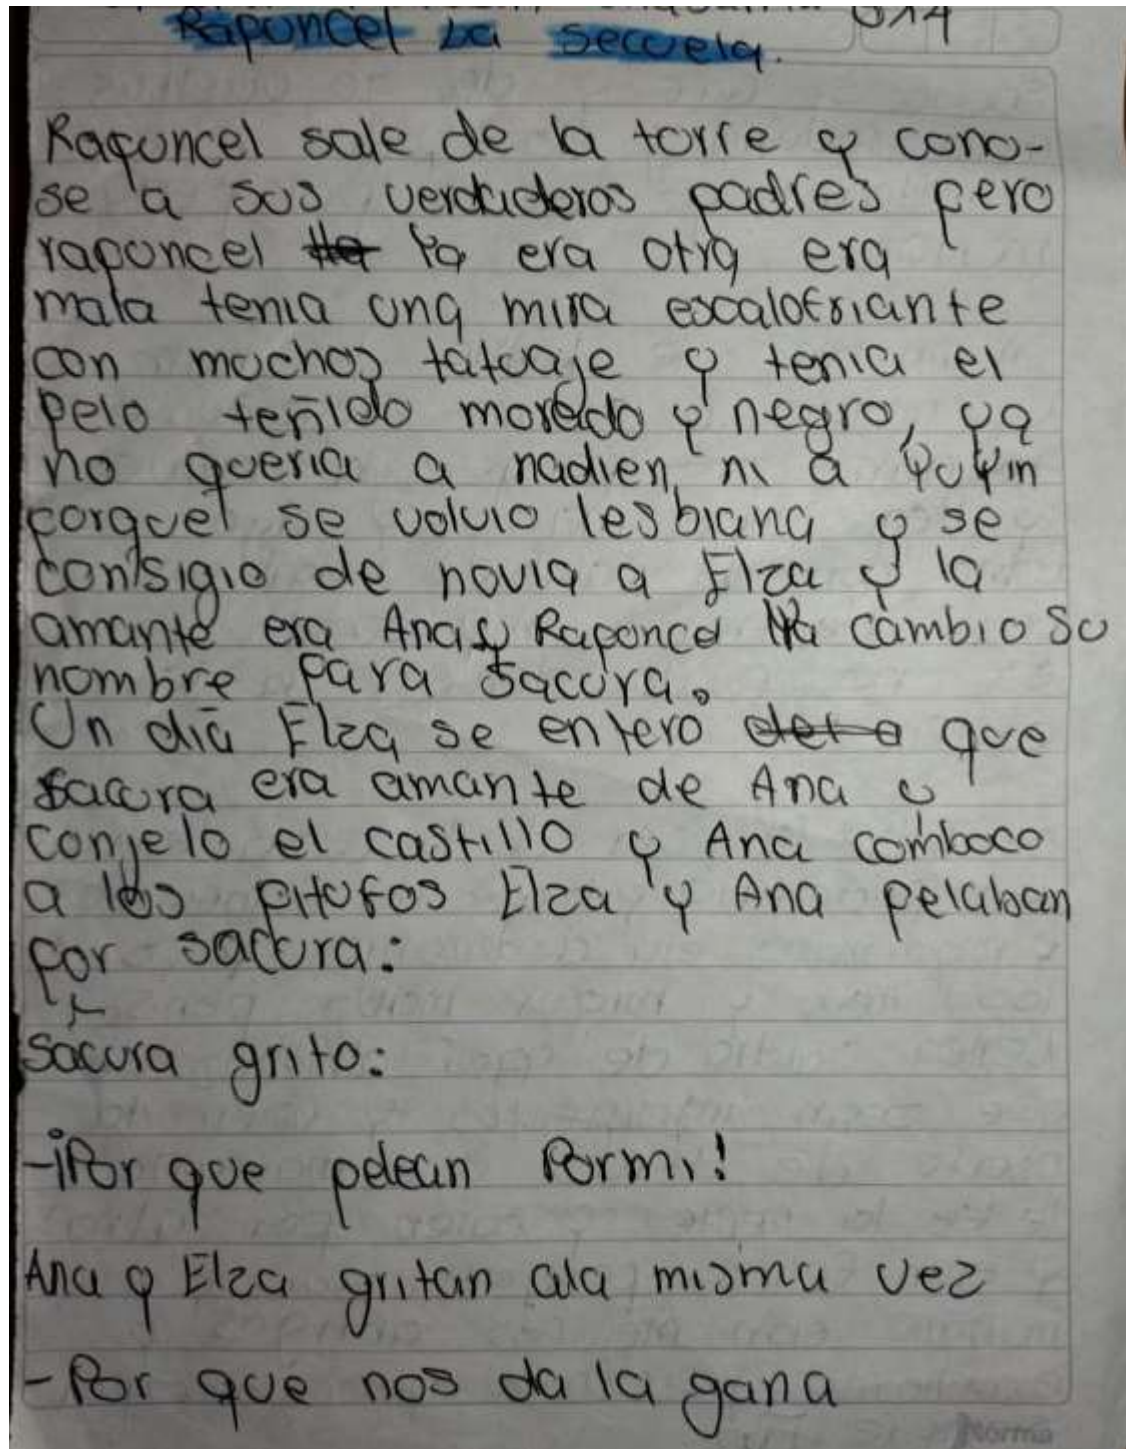 Raponcel La secuela.
Raponcel sale de la torre y cono-
se a sus verdaderos padres pero
raponcel ya era otra era
mala tenia una mira escalofriante
con muchos tatuaje y tenia el
pelo teñido morado y negro, ya
no queria a nadien ni a
porquel se volvio lesbiana y se
consigio de novia a Elza y la
amante era Ana y Raponcel cambio su
nombre para sacura.
Un dia Elza se entero que
sacura era amante de Ana y
conjelo el castillo y Ana comboco
a los pitufos Elza y Ana pelaban
por sacura:
Sacura grito:
-¡Por que pelean Pormi!
Ana y Elza gritan ala misma vez
-Por que nos da la gana
Norma